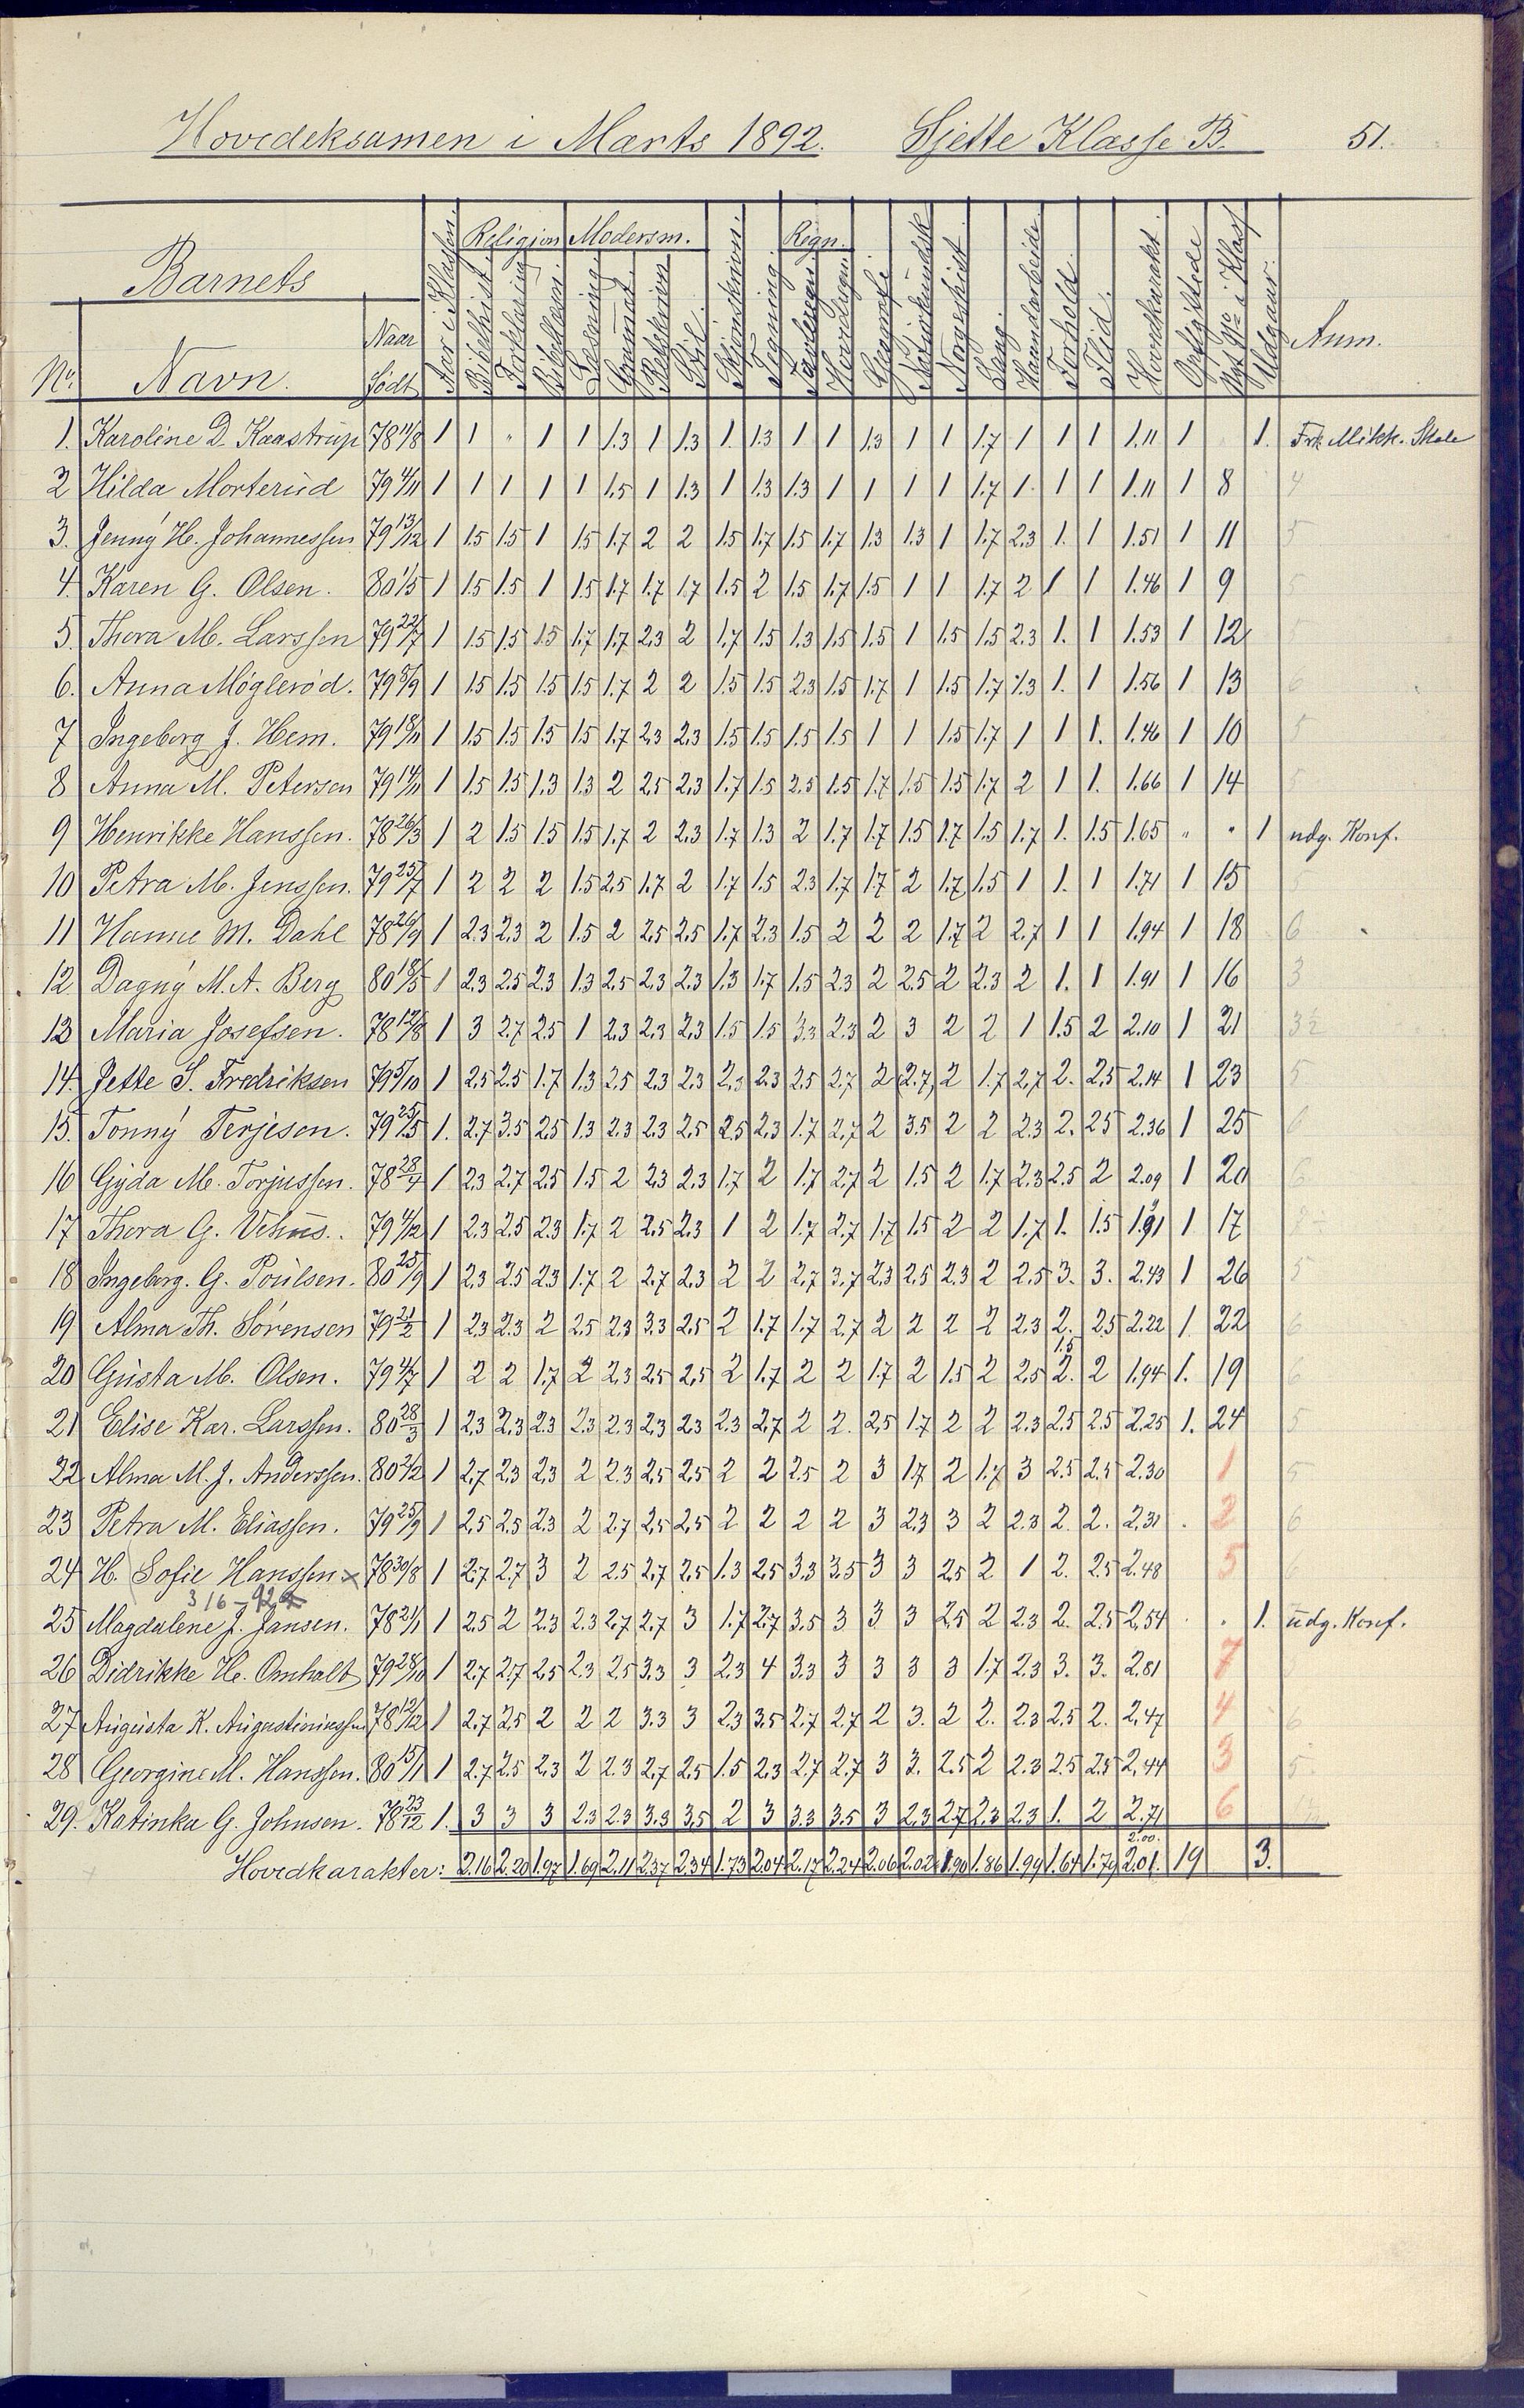 Hovedeksamen i Marts 1892. Sjette Klasse B. 51.
Barnets
No. Navn. Naar født Aar i Klassen. Religion Bibelhist. Forklaring Bibellæsn. Modersm. Læsning Grammat. Retskrivn. Stil. Skjønskrivn. Tegning. Regn. Tavleregn. Hovedregn. Geografi. Naturkundsk. Norgeshist. Sang. Haandarbeide Forhold. Flid. Hovedkarakt. Opflyttede Nyt No i Klas Udgaar. Anm.
1. Karoline D. Kaastrup 78 11/8 1 1 " 1 1 1.3 1 1.3 1. 1.3 1 1 1.3 1 1 1.7 1 1 1 1.11 1 1. Frk. Mikk. Skole
2 Hilda Morterud 79 4/11 1 1 1 1 1 1.5 1 1.3 1 1.3 1.3 1 1 1 1 1.7 1. 1 1 1.11 1 8 4
3. Jenny H. Johannessen 79 13/12 1 1.5 1.5 1 1.5 1.7 2 2 1.5 1.7 1.5 1.7 1.3 1.3 1 1.7 2.3 1. 1 1.51 1 11 5
4. Karen G. Olsen. 80 1/5 1 1.5 1.5 1 1.5 1.7 1.7 1.7 1.5 2 1.5 1.7 1.5 1 1 1.7 2 1 1 1.46 1 9 5
5. Thora M. Larssen 79 22/7 1 1.5 1.5 1.5 1.7 1.7 2.3 2 1.7 1.5 1.3 1.5 1.5 1 1.5 1.5 2.3 1. 1 1.53 1 12 5
6. Anna Mögleröd. 79 5/9 1 1.5 1.5 1.5 1.5 1.7 2 2 1.5 1.5 2.3 1.5 1.7 1 1.5 1.7 1.3 1. 1 1.56 1 13 6
7 Ingeborg J. Hem. 79 18/11 1 1.5 1.5 1.5 1.5 1.7 2.3 2.3 1.5 1.5 1.5 1.5 1 1 1.5 1.7 1 1 1. 1.46 1 10 5
8 Anna M. Petersen 79 14/11 1 1.5 1.5 1.3 1.3 2 2.5 2.3 1.7 1.5 2.5 1.5 1.7 1.5 1.5 1.7 2 1 1. 1.66 1 14 5
9 Henrikke Hanssen. 78 26/3 1 2 1.5 1.5 1.5 1.7 2 2.3 1.7 1.3 2 1.7 1.7 1.5 1.7 1.5 1.7 1. 1.5 1.65 " " 1 udg. Konf.
10 Petra M. Jenssen. 79 25/7 1 2 2 2 1.5 2.5 1.7 2 1.7 1.5 2.3 1.7 1.7 2 1.7 1.5 1 1. 1 1.71 1 15 5
11 Hanne M. Dahl 78 26/9 1 2.3 2.3 2 1.5 2 2.5 2.5 1.7 2.3 1.5 2 2 2 1.7 2 2.7 1 1 1.94 1 18 6
12 Dagny M. A. Berg 80 18/5 1 2.3 2.5 2.3 1.3 2.5 2.3 2.3 1.3 1.7 1.5 2.3 2 2.5 2 2.3 2 1. 1 1.91 1 16 3
13 Maria Josefsen. 78 17/8 1 3 2.7 2.5 1 2.3 2.3 2.3 1.5 1.5 3.3 2.3 2 3 2 2 1 1.5 2 2.10 1 21 3½
14. Jette S. Fredriksen 79 5/10 1 2.5 2.5 1.7 1.3 2.5 2.3 2.3 2.3 2.3 2.5 2.7 2 2.7 2 1.7 2.7 2. 2.5 2.14 1 23 5
15. Tonny Terjesen. 79 25/5 1. 2.7 3.5 2.5 1.3 2.3 2.3 2.5 2.5 2.3 1.7 2.7 2 3.5 2 2 2.3 2. 2.5 2.36 1 25 6
16 Gyda M. Torjussen. 78 28/4 1 2.3 2.7 2.5 1.5 2 2.3 2.3 1.7 2 1.7 2.7 2 1.5 2 1.7 2.3 2.5 2 2.09 1 20 6
17 Thora G. Vehus. 79 4/12 1 2.3 2.5 2.3 1.7 2 2.5 2.3 1 2 1.7 2.7 1.7 1.5 2 2 1.7 1. 1.5 1.91 1 17
18 Ingeborg. G. Poulsen. 80 25/9 1 2.3 2.5 2.3 1.7 2 2.7 2.3 2 2 2.7 3.7 2.3 2.5 2.3 2 2.5 3. 3. 2.43 1 26 5
19 Alma Th. Sörensen 79 21/2 1 2.3 2.3 2 2.5 2.3 3.3 2.5 2 1.7 1.7 2.7 2 2 2 2 2.3 2. 2.5 2.22 1 22 6
1.5
20 Gusta M. Olsen. 79 4/7 1 2 2 1.7 2 2.3 2.5 2.5 2 1.7 2 2 1.7 2 1.5 2 2.5 2. 2 1.94 1. 19 6
21 Elise Kar. Larssen. 80 28/3 1 2.3 2.3 2.3 2.3 2.3 2.3 2.3 2.3 2.7 2 2. 2.5 1.7 2 2 2.3 2.5 2.5 2.25 1. 24 5
22 Alma M. J. Anderssen. 80 2/2 1 2.7 2.3 2.3 2 2.3 2.5 2.5 2 2 2.5 2 3 1.7 2 1.7 3 2.5 2.5 2.30 1 5
23 Petra M. Eliassen. 79 25/9 1 2.5 2.5 2.3 2 2.7 2.5 2.5 2 2 2 2 3 2.3 3 2 2.3 2. 2. 2.31 . 2 6
24 H. Sofie Hanssen x 78 30/8 1 2.7 2.7 3 2 2.5 2.7 2.5 1.3 2.5 3.3 3.5 3 3 2.5 2 1 2. 2.5 2.48 5 6
3 16 - 92
25 Magdalene J. Jansen. 78 21/1 1 2.5 2 2.3 2.3 2.7 2.7 3 1.7 2.7 3.5 3 3 3 2.5 2 2.3 2. 2.5 2.54 . . 1. udg. Konf.
26 Didrikke He. Omholt 79 28/10 1 2.7 2.7 2.5 2.3 2.5 3.3 3 2.3 4 3.3 3 3 3 3 1.7 2.3 3. 3. 2.81 7
27 Augusta K. Augustiniussen 78 12/12 1 2.7 2.5 2 2 2 3.3 3 2.3 3.5 2.7 2.7 2 3. 2 2. 2.3 2.5 2. 2.47 4 6
28 Georgine M. Hanssen. 80 15/1 1 2.7 2.5 2.3 2 2.3 2.7 2.5 1.5 2.3 2.7 2.7 3 3. 2.5 2 2.3 2.5 2.5 2.44 3 5
29. Katinka G. Johnsen. 78 23/12 1. 3 3 3 2.3 2.3 3.3 3.5 2 3 3.3 3.5 3 2.3 2.7 2.3 2.3 1. 2 2.71 6
2.00.
Hovedkarakter: 2.16 2.20 1.97 1.69 2.11 2.37 2.34 1.73 2.04 2.17 2.24 2.06 2.02 1.90 1.86 1.99 1.64 1.79 2.01. 19 3.